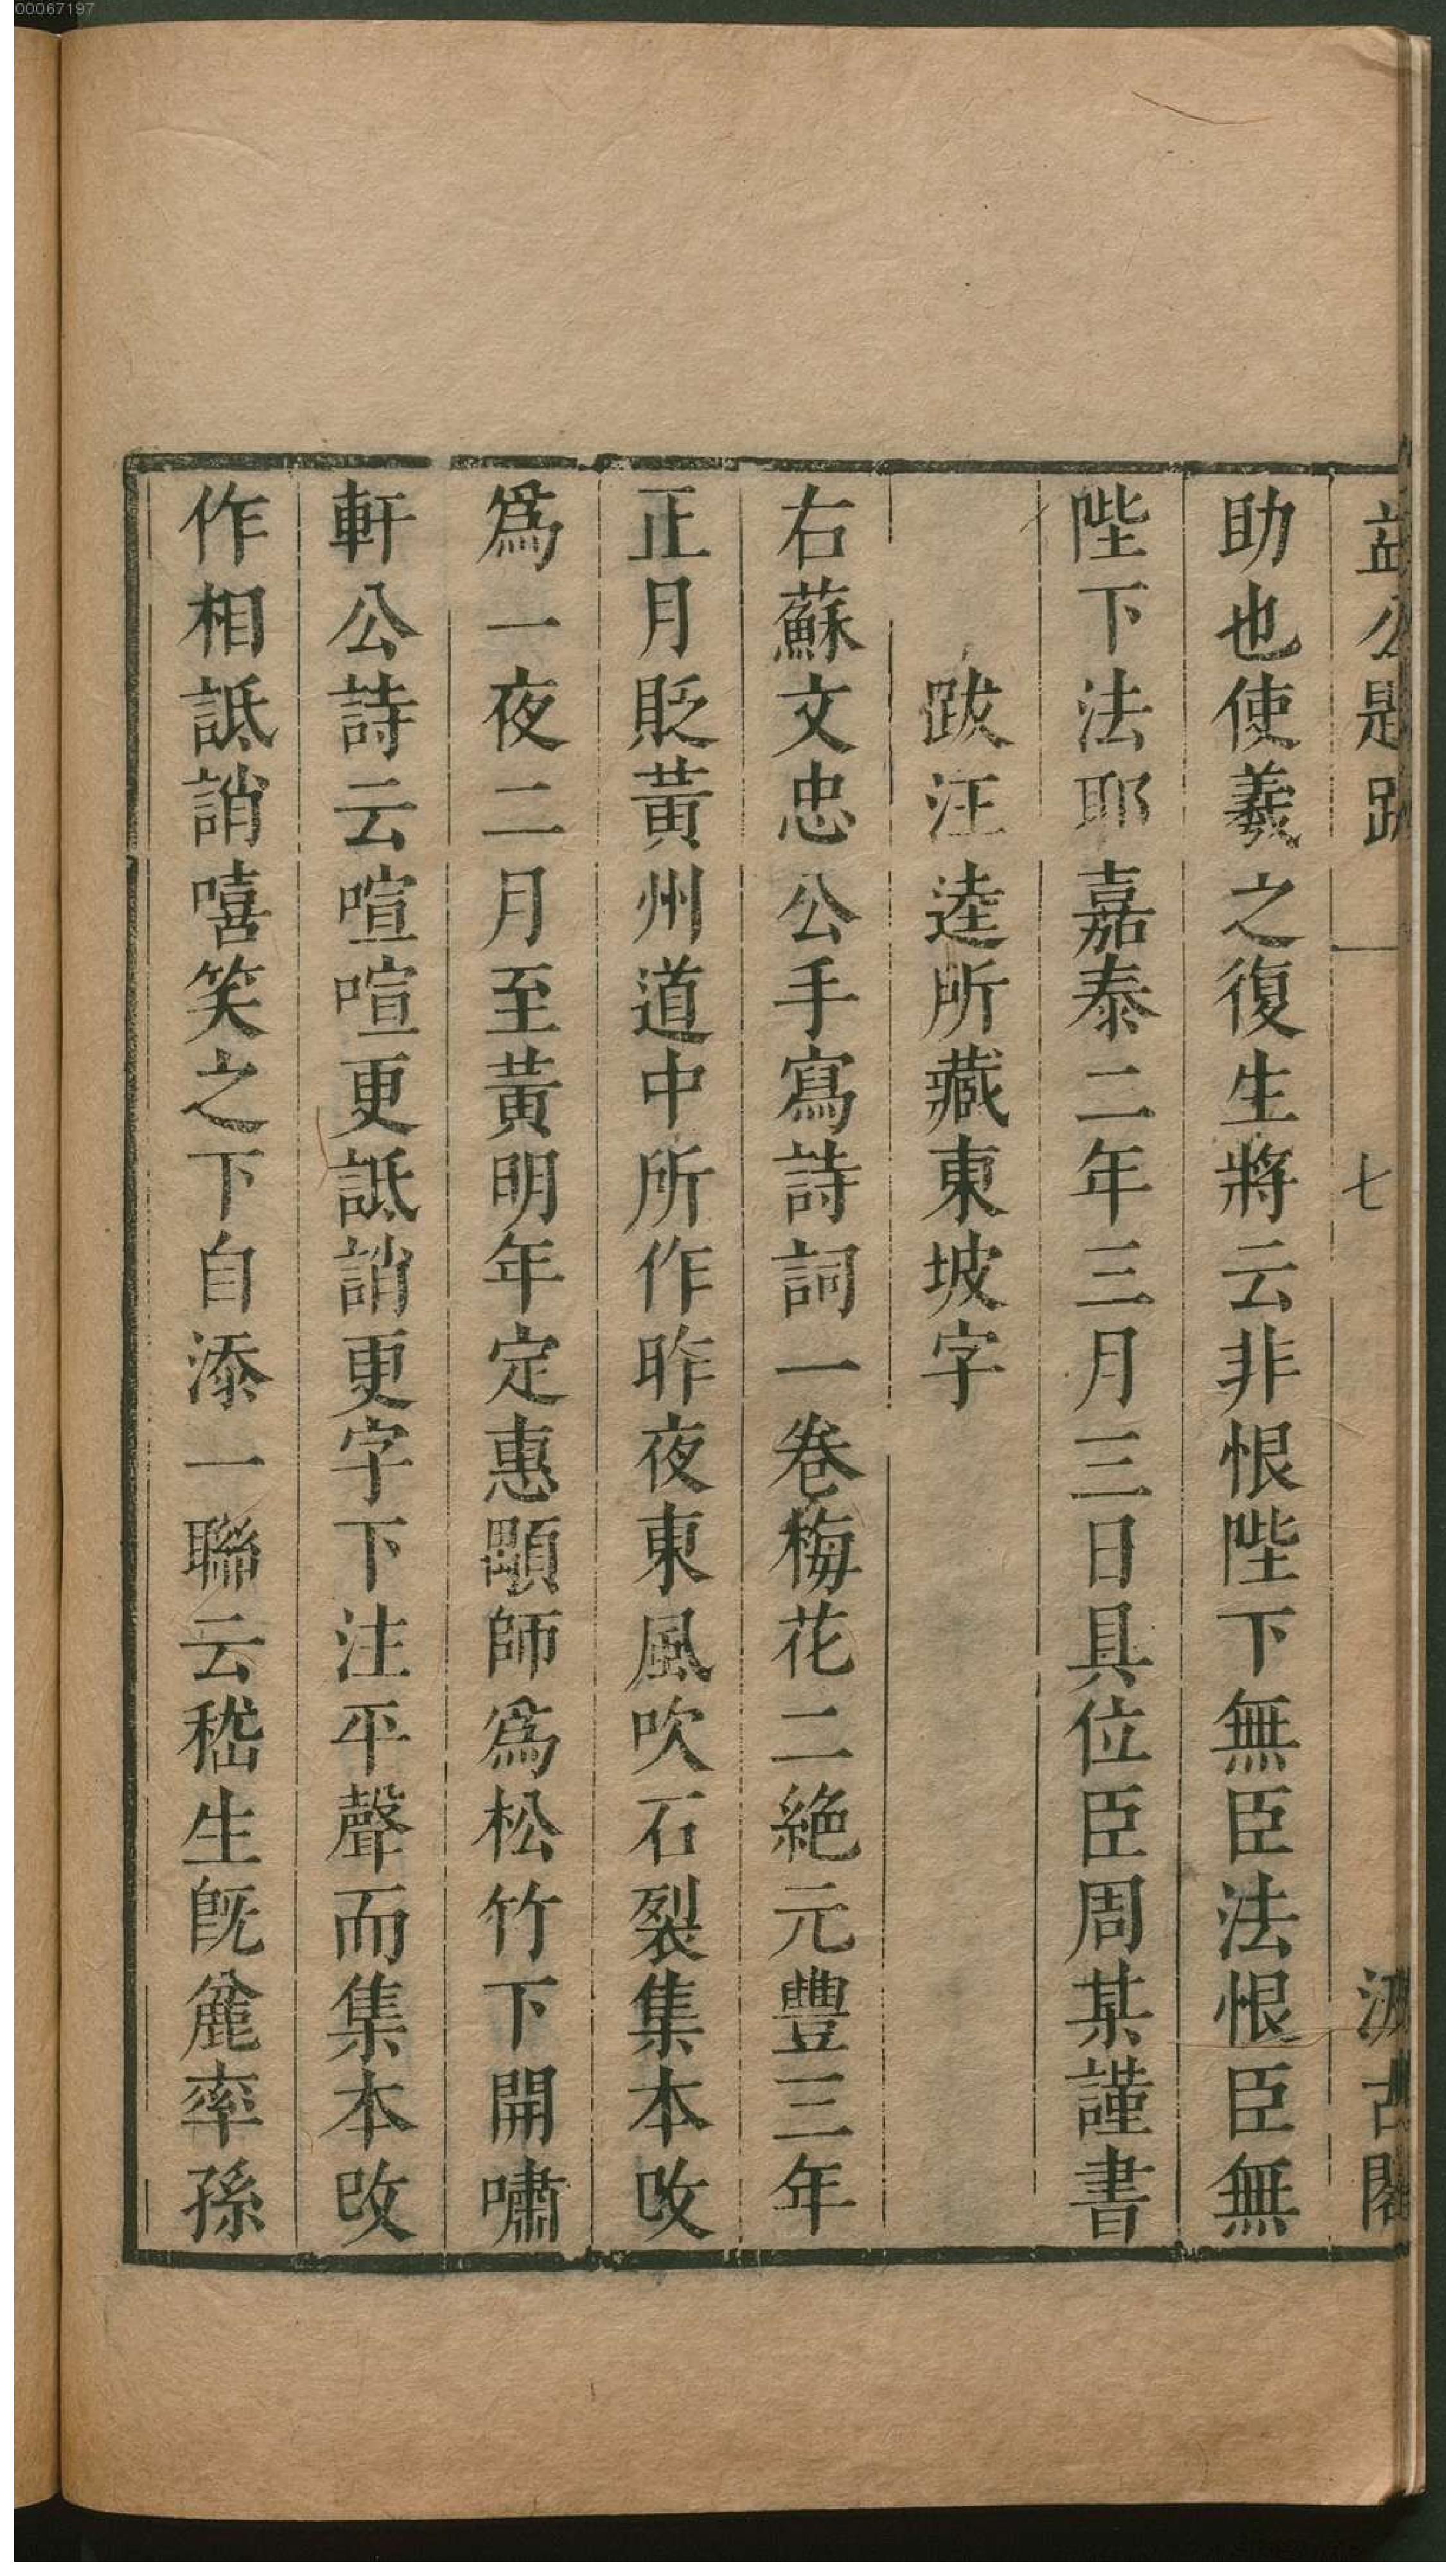 00067197
益公題跋 一 七 汲古閣
助也使羲之復生將云非恨陛下無臣法恨臣無
陛下法耶嘉泰二年三月三日具位臣周某謹書
跋汪逵所藏東坡字
右蘇文忠公手寫詩詞一卷梅花二絶元豐三年
正月貶黃州道中所作昨夜東風吹石裂集本改
爲一夜二月至黃明年定惠顒師爲松竹下開嘯
軒公詩云喧喧更詆誚更字下注平聲而集本改
作相詆誚嘻笑之下自添一聯云嵇生既麄率孫